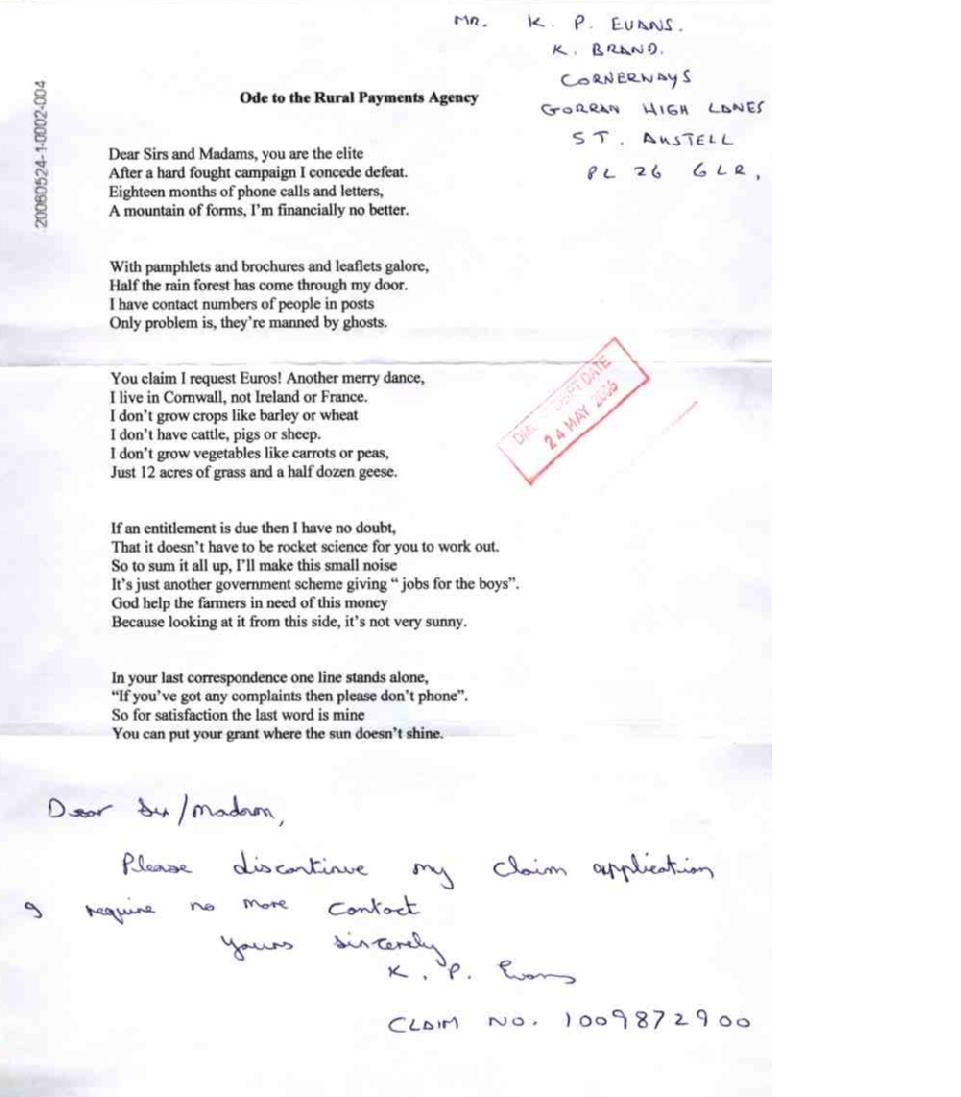 MR. K. P. EVANS.
K. BRAND.
CORNERWAYS
GORRAN HIGH LANES
ST. AUSTELL
PL 26 6LR,
20060524-1-0002-004
Ode to the Rural Payments Agency
Dear Sirs and Madams, you are the elite
After a hard fought campaign I concede defeat.
Eighteen months of phone calls and letters,
A mountain of forms, I'm financially no better.
With pamphlets and brochures and leaflets galore,
Half the rain forest has come through my door.
I have contact numbers of people in posts
Only problem is, they're manned by ghosts.
You claim I request Euros! Another merry dance,
I live in Cornwall, not Ireland or France.
I don't grow crops like barley or wheat
I don't have cattle, pigs or sheep.
I don't grow vegetables like carrots or peas,
Just 12 acres of grass and a half dozen geese.
DATE
24 MAY 2006
If an entitlement is due then I have no doubt,
That it doesn't have to be rocket science for you to work out.
So to sum it all up, I'll make this small noise
It's just another government scheme giving “ jobs for the boys”.
God help the farmers in need of this money
Because looking at it from this side, it's not very sunny.
In your last correspondence one line stands alone,
“If you've got any complaints then please don't phone”.
So for satisfaction the last word is mine
You can put your grant where the sun doesn't shine.
Dear Sir/Madam,
Please discontinue my claim application
I require no more contact
Yours sincerely
K. P. Evans
CLAIM NO. 1009872900